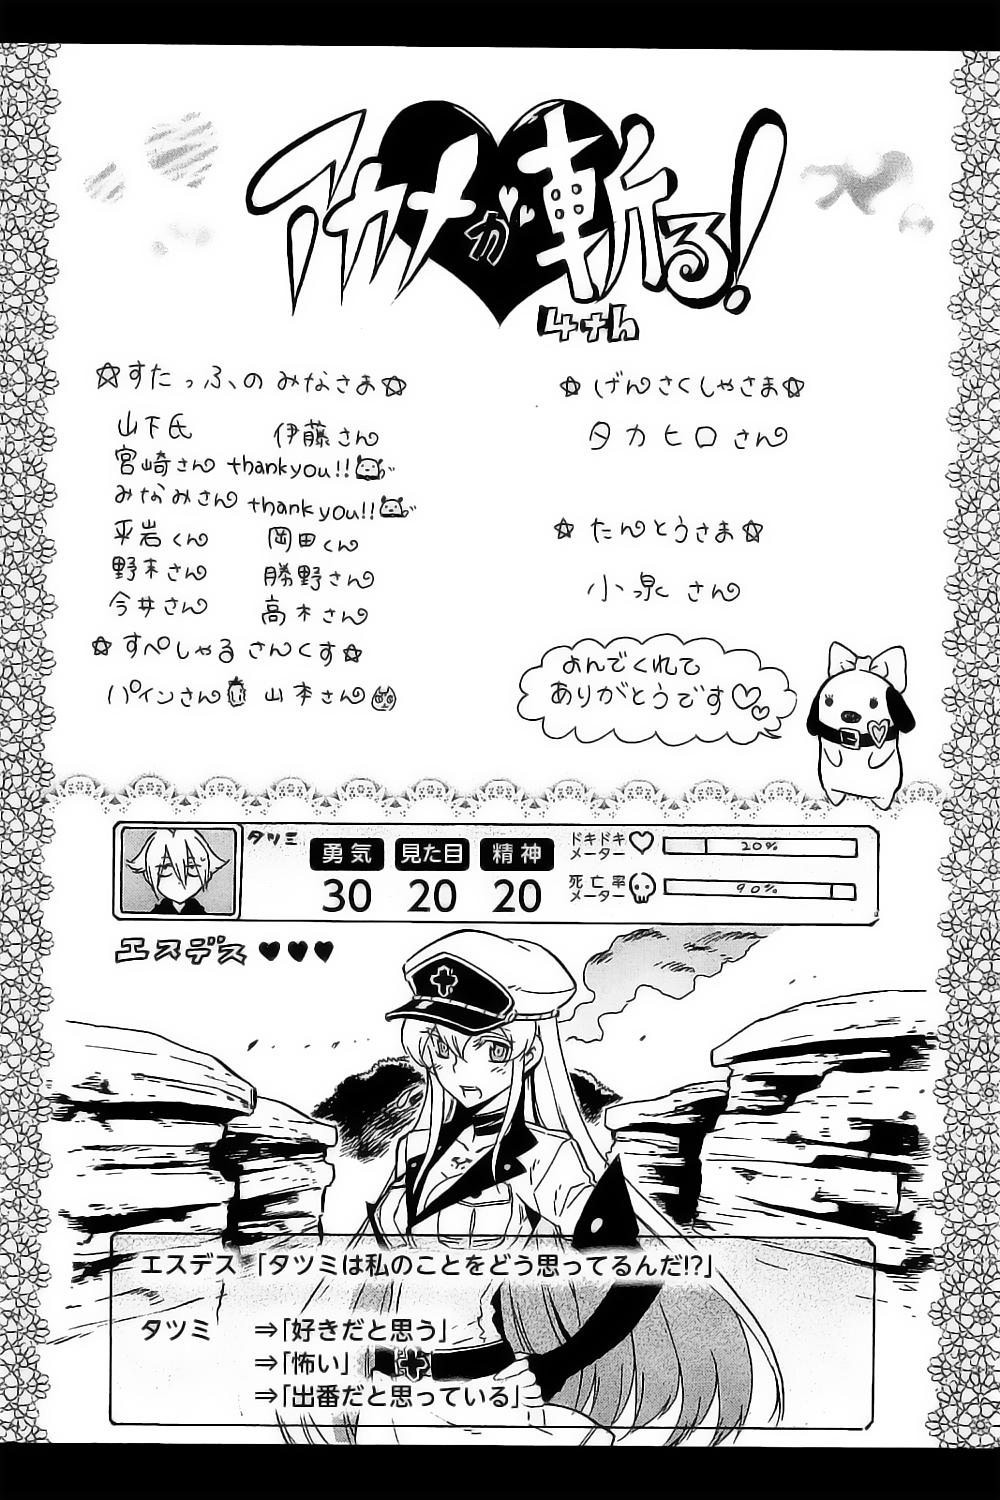 アカメが斬る!
4th
☆すたっふのみなさま☆
山下氏 伊藤さん
宮崎さん thank you!!
みなみさん thank you!!
平岩くん 岡田くん
野木さん 勝野さん
今井さん 高木さん
☆すぺしゃるさんくす☆
パインさん 山本さん
☆げんさくしゃさま☆
タカヒロさん
☆たんとうさま☆
小泉さん
よんでくれて
ありがとうです♡♡
タツミ
勇気 見た目 精神
30 20 20
ドキドキメーター 20%
死亡率メーター 90%
エスデス♥♥♥
エスデス「タツミは私のことをどう思ってるんだ!?」
タツミ ⇒「好きだと思う」
⇒「怖い」
⇒「出番だと思っている」